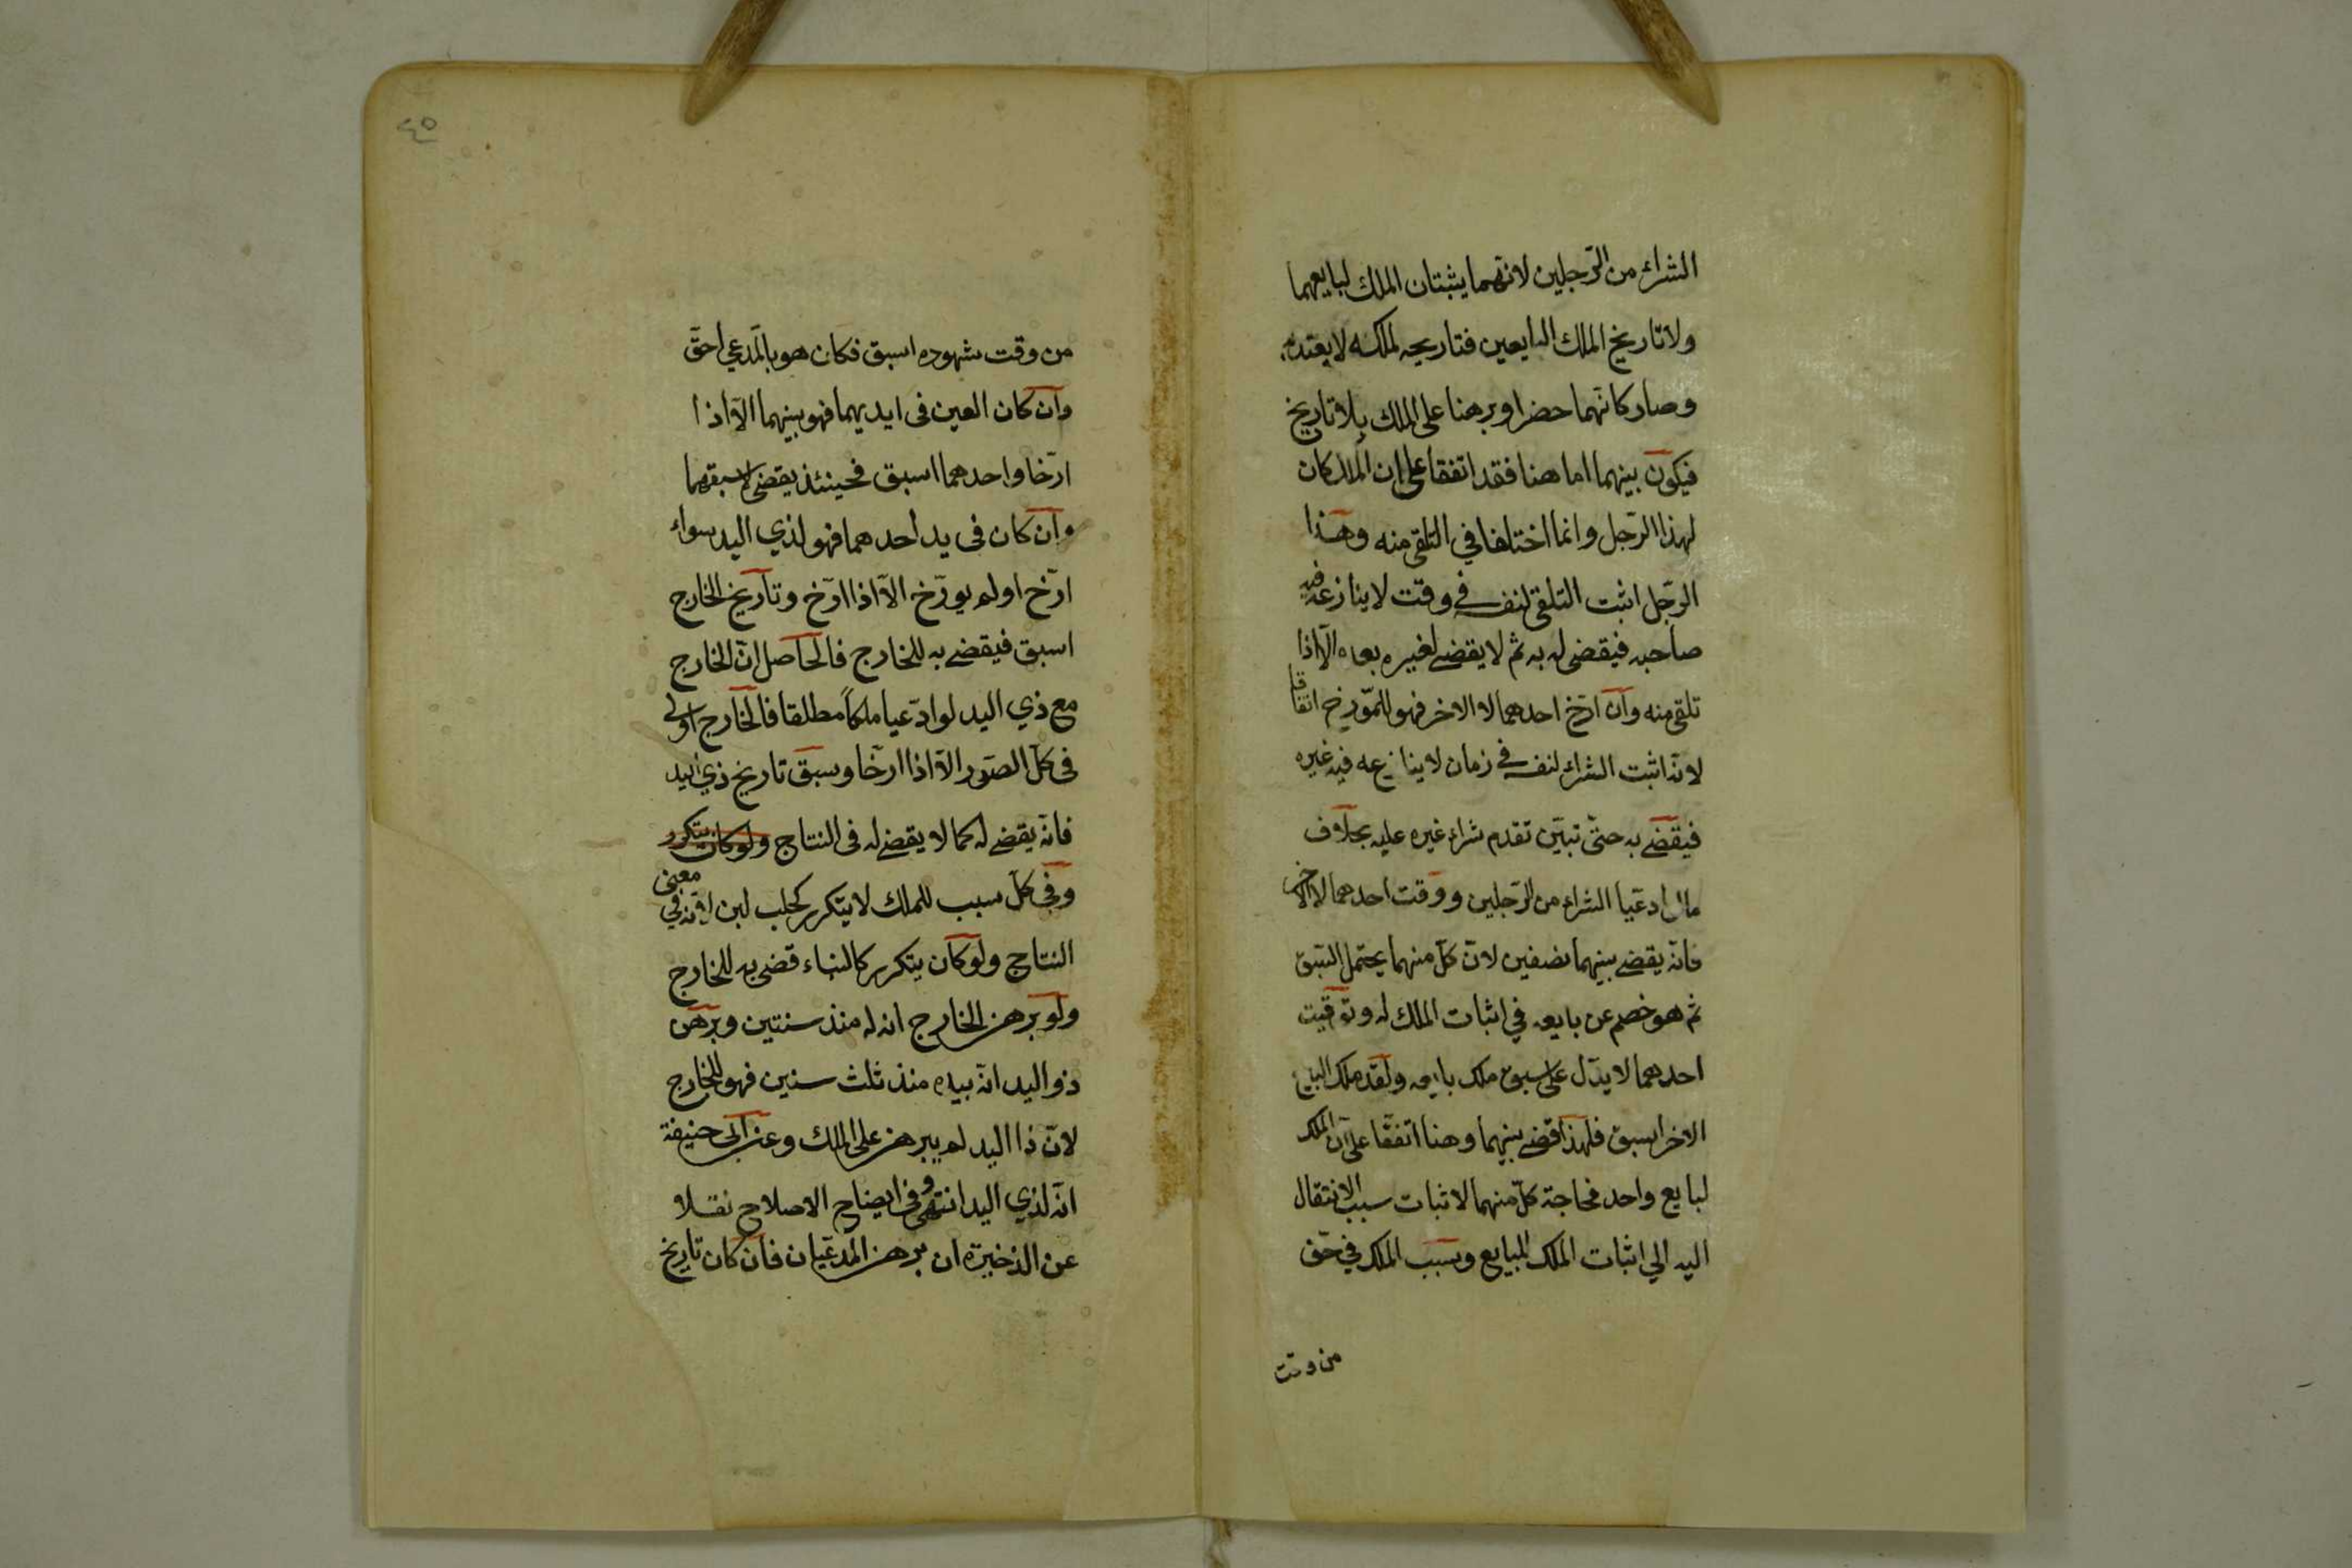 الشراء من الرّجلين لانّهما يثبتان الملك لبايعهما
ولا تاريخ الملك البايعين فتاريخه لملكه لا يعتد به
وصار كانّهما حضرا وبرهنا على الملك بلا تاريخ
فيكون بينهما اما هنا فقد اتفقا على ان الملك كان
لهذا الرّجل وانما اختلفا في التلقى منه وهذا
الرجّل اثبت التلقى لنفسه في وقت لا ينازعه فيه
صاحبه فيقضى له به ثم لا يقضے لغيره بعده الّا اذا
تلقى منه وان ارّخ احدهما لا الاخر فهو للمّورخ اتفاقا
لانّه اثبت الشراء لنفسه في زمان لا ينازعه فيه غيره
فيقضے به حتّى تبيّن تقدم شراء غيره عليه بخلاف
مالو ادعّيا الشراء من الرّجلين ووقت احدهما لا الاخر
فانّه يقضے بينهما نصفين لانّ كلّ منهما يحتمل السّبق
ثم هو خصم عن بايعه في اثبات الملك له وتوقيت
احدهما لا يدّل على سبق ملك بايعه ولقد ملك البايع
الاخر اسبق فلهذا قضے بينهما وهنا اتفقّا على ان الملك
لبايع واحد فحاجة كلّ منهما لاثبات سبب الانتقال
اليه الي اثبات الملك للبايع وسبب الملك في حقّ
من وقت
٤٥
من وقت شهوده اسبق فكان هو بالمّدعي احقّ
وان كان العين فى ايديهما فهو بينهما الّا اذا
ارّخا واحدهما اسبق فحينئذ يقضى لاسبقهما
وان كان فى يد احدهما فهو لذي اليد سواء
ارّخ او لم يورّخ الّا اذا ارّخ وتاريخ الخارج
اسبق فيقضے به للخارج فالحاصل انّ الخارج
مع ذي اليد لو ادّعيا ملكاً مطلقا فالخارج اولى
فى كلّ الصّور الّا اذا ارّخا وسبق تاريخ ذي اليد
فانّه يقضے له كما لا يقضے له فى النتاج ولو كان يتكرر
وفي كلّ سبب للملك لا يتكرر كحلب لبن لانّه في معنى
النتاج ولو كان يتكرر كالبناء قضى به للخارج
ولو برهن الخارج انه له منذ سنتين وبرهن
ذو اليد انّه بيده منذ ثلث سنين فهو للخارج
لانّ ذا اليد لم يبرهن على الملك وعن ابى حنيفة
انّه لذي اليد انتهى وفى ايضاح الاصلاح نقلا
عن الذخيرة ان برهن المدّعيان فان كان تاريخ